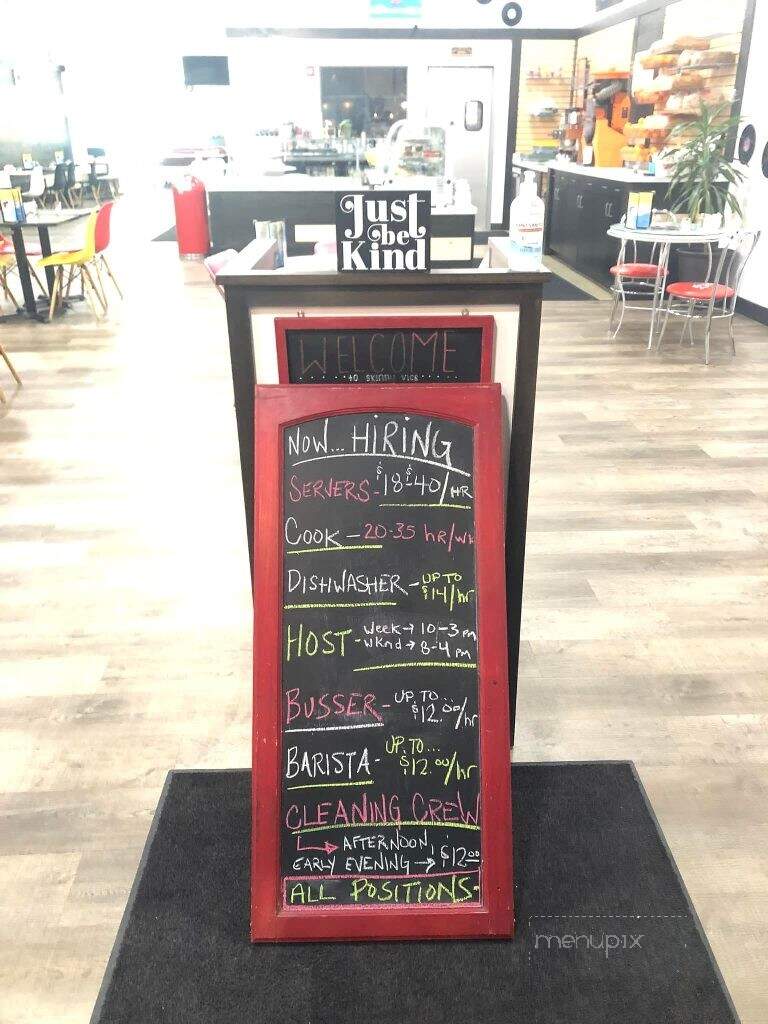 Just
be
Kind
WELCOME
to SKINNY VICS
NOW... HiRiNG
SERVERS - $18-$40/HR
COOK - 20-35 hR/WK
DISHWASHER - UP TO $14/hr
HOST - Week → 10-3 PM
WKnd → 8-4 PM
BUSSER - UP TO... $12.00/hr
BARISTA - UP TO... $12.00/hr
CLEANING CREW
→ AFTERNOON,
EARLY EVENING → $12.00
ALL POSITIONS
menupix